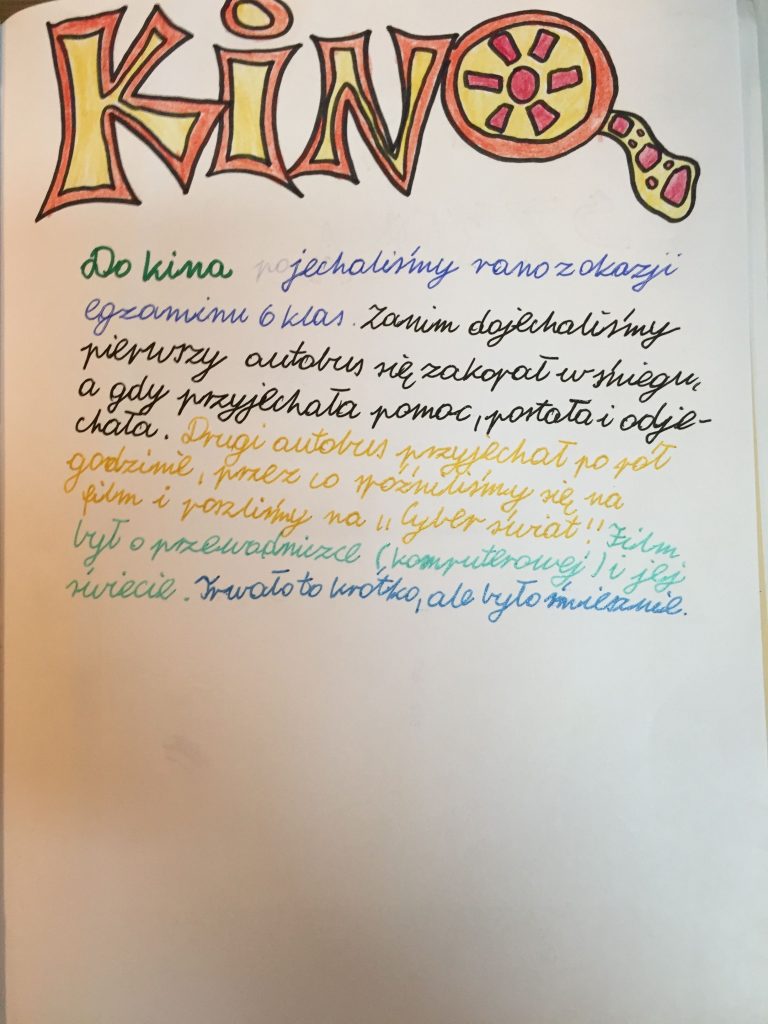 KiNO
Do kina pojechaliśmy rano z okazji
egzaminu 6 klas. Zanim dojechaliśmy
pierwszy autobus się zakopał w śniegu,
a gdy przyjechała pomoc, postała i odje-
chała. Drugi autobus przyjechał po pół
godzinie, przez co spóźniliśmy się na
film i poszliśmy na "Cyber świat". Film
był o przewodniczce (komputerowej) i jej
świecie. Trwało to krótko, ale było śmiesznie.